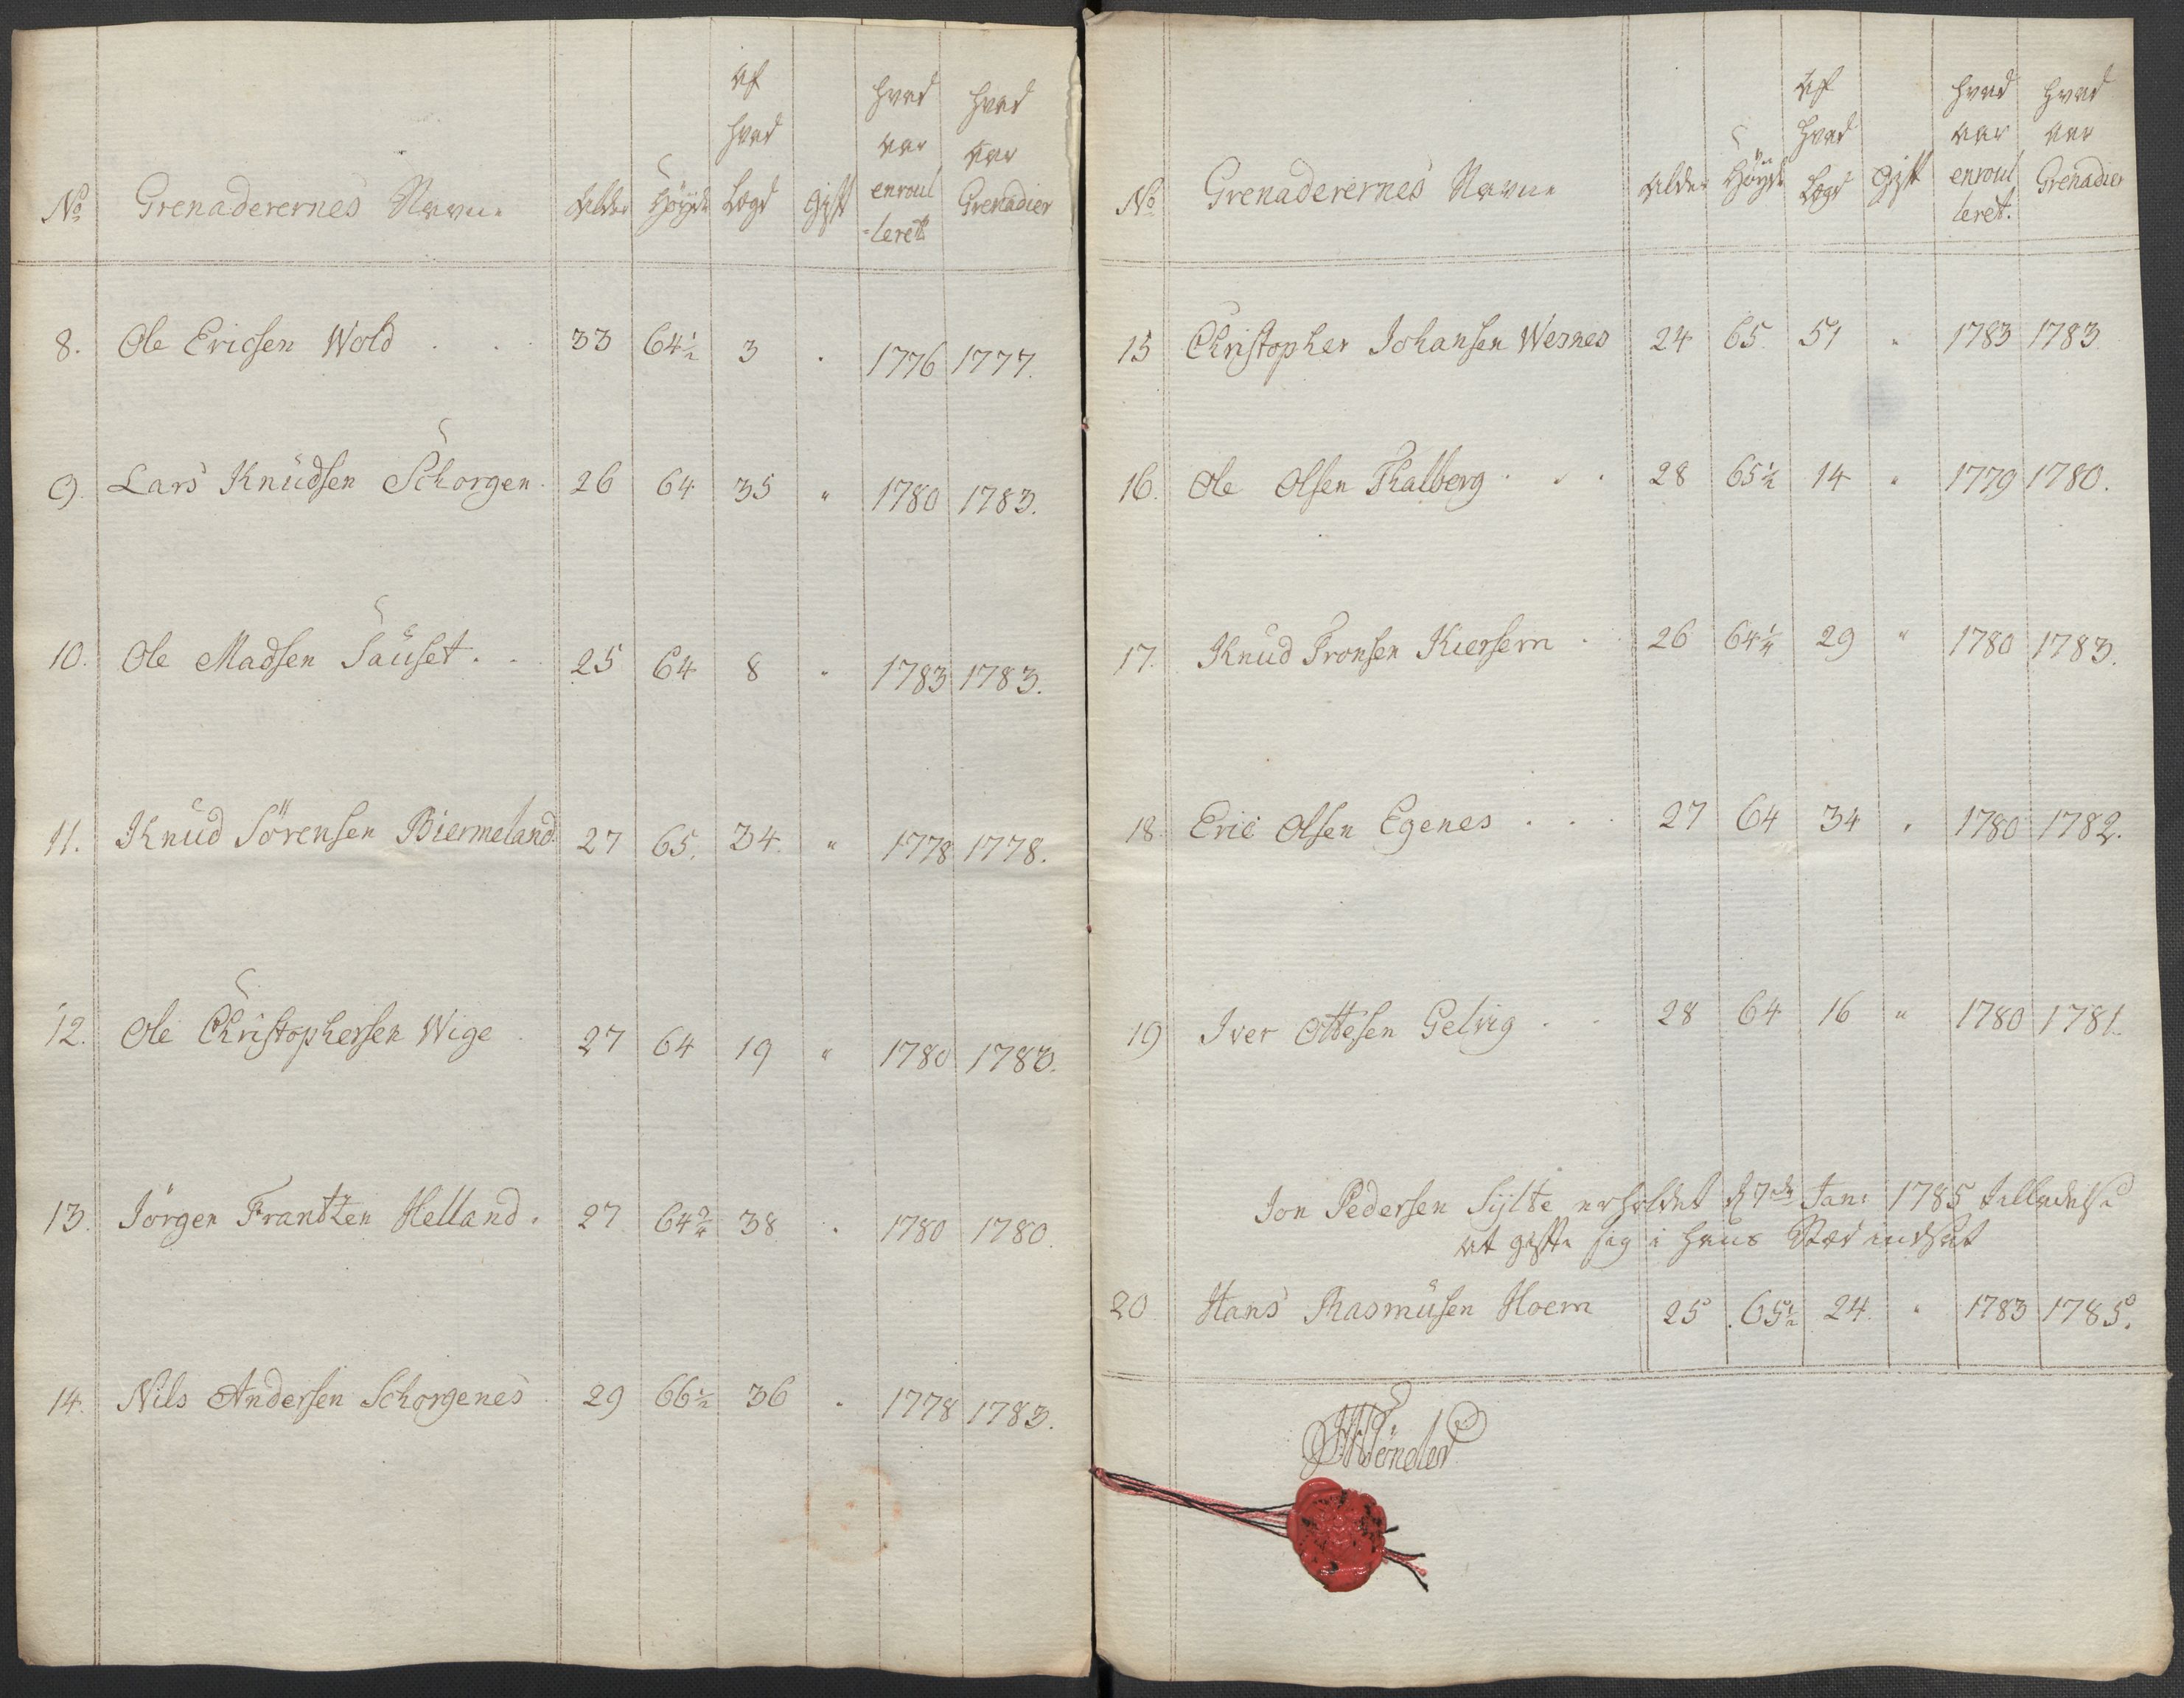 No Grenaderernes Navne Alder Höyde af hvad Lægd Gift hvad aar enroul-leret hvad aar Grenadier
8. Ole Ericsen Wold . . . 33 64½ 3 . 1776 1777.
9. Lars Knudsen Schorgen. 26 64 35 " 1780 1783.
10. Ole Madsen Sauset. . . 25 64 8 " 1783 1783.
11. Knud Sörensen Biermeland. 27 65. 34. " 1778 1778.
12. Ole Christophersen Wige . 27 64 19 " 1780 1783.
13. Jörgen Frantzen Helland. 27 64¾ 38 . 1780 1780.
14. Nils Andersen Schorgenes . 29 66½ 36 . 1778 1783.
No Grenaderernes Navne Alder Höyde af hvad Lægd Gift hvad aar enroulleret. hvad aar Grenadier
15 Christopher Johansen Wesnes 24 65. 51 " 1783 1783
16. Ole Olsen Thalberg . . . 28 65½ 14 " 1779 1780.
17. Knud Tronsen Kiersem . . 26 64¼ 29 " 1780 1783.
18. Eric Olsen Egenes . . . 27 64 34 " 1780 1782.
19 Iver Ottesen Gelvig . . 28 64 16 " 1780 1781.
Jon Pedersen Sylte erholdet d 7de Jan: 1785 Tilladelse
at gifte sig i hans Sted indsat
20 Hans Rasmusen Hoem 25 65½ 24. " 1783 1785.